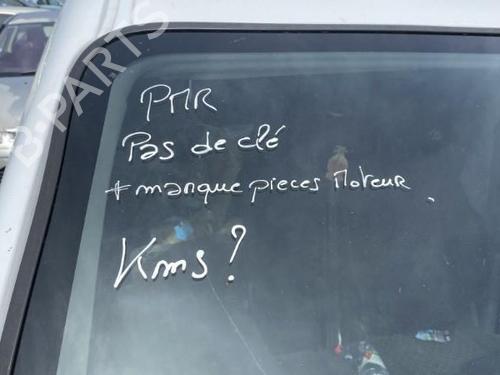 B-PARTS
PMR
Pas de clé
+ manque pieces Moteur
Kms ?